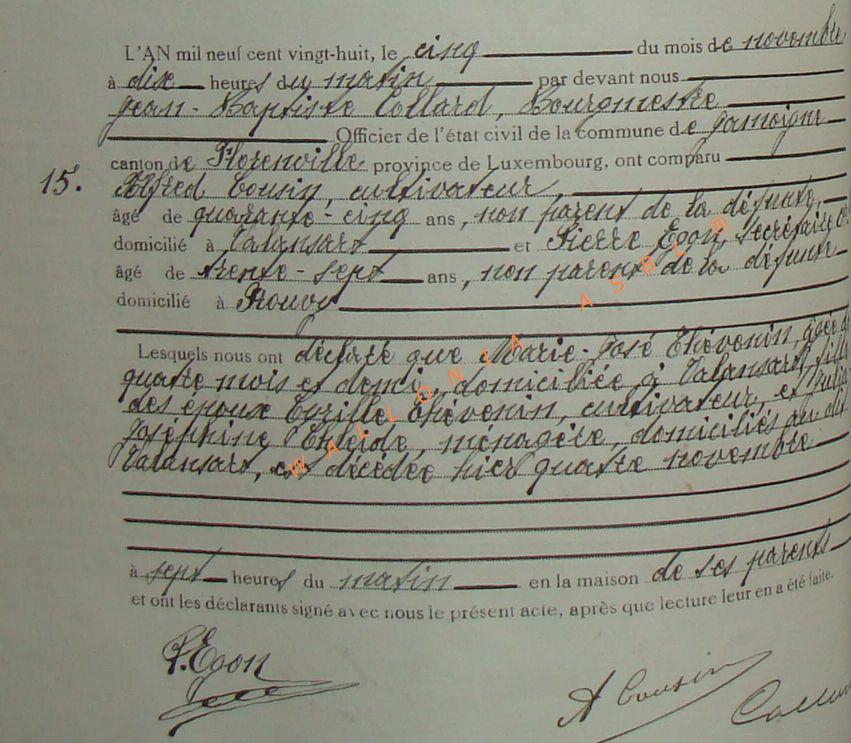 L'AN mil neuf cent vingt-huit, le cinq du mois de novembre
à dix heures du matin par devant nous
Jean-Baptiste Collard, Bourgmestre
Officier de l'état civil de la commune de Jamoigne
canton de Florenville province de Luxembourg, ont comparu
15. Alfred Cousin, cultivateur,
âgé de quarante-cinq ans, non parent de la défunte,
domicilié à Valansart et Pierre Egon, secrétaire
âgé de trente-sept ans, non parent de la défunte
domicilié à Prouvy
Lesquels nous ont déclaré que Marie-José Thévenin, âgée de
quatre mois et demi, domiciliée à Valansart, fille
des époux Cyrille Thévenin, cultivateur, et
Joséphine ménagère, domiciliés au dit
Valansart, est décédée hier quatre novembre
à sept heures du matin en la maison de ses parents
et ont les déclarants signé avec nous le présent acte, après que lecture leur en a été faite.
P. Egon
A Cousin
WALLONIA ASBL ®